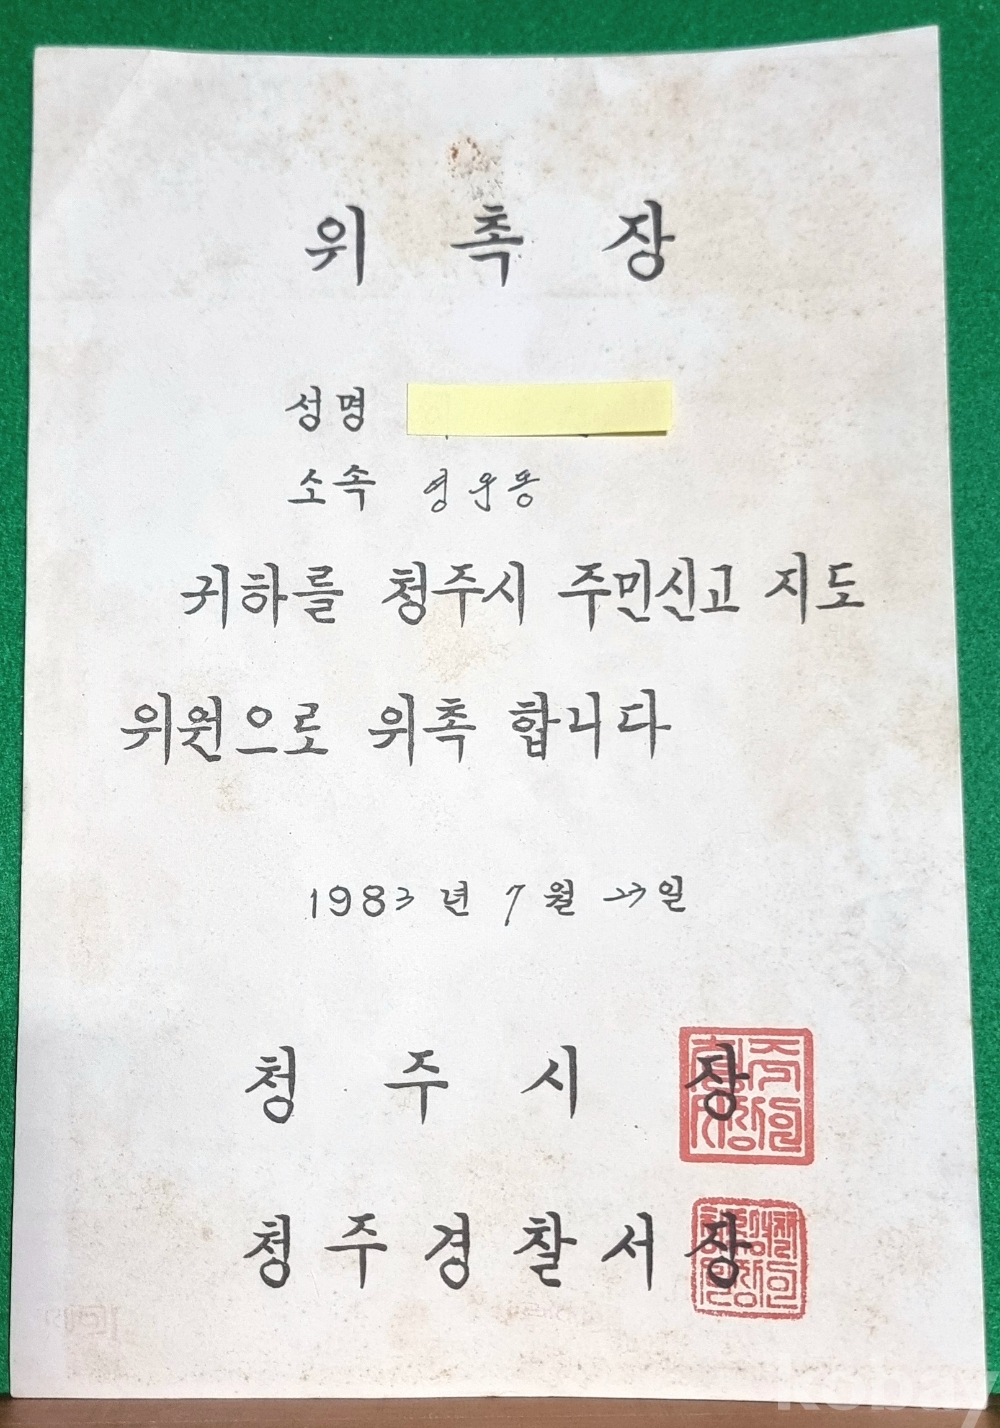 위 촉 장
성명
소속 영운동
귀하를 청주시 주민신고 지도
위원으로 위촉 합니다
1983 년 7 월 23일
청 주 시 장
청 주 경 찰 서 장
kobay